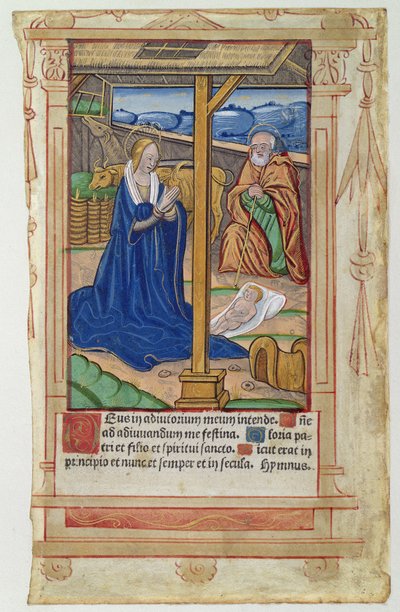 Deus in adiutorium meum intende. Dñe
ad adiuuandum me festina. Gloria pa-
tri et filio et spiritui sancto. Sicut erat in
principio et nunc et semper et in secula. Hymnus.